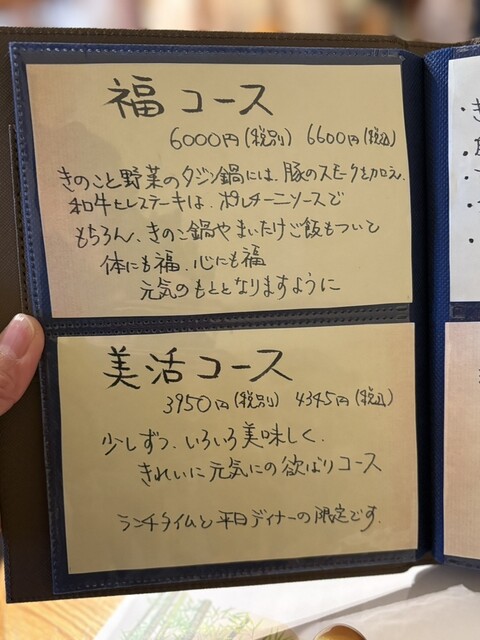 福コース
6000円(税別) 6600円(税込)
きのこと野菜のタジン鍋には、豚のスモークを加え、
和牛ヒレステーキは、ポルチーニソースで
もちろん、きのこ鍋やまいたけご飯もついて
体にも福、心にも福
元気のもととなりますように
美活コース
3950円(税別) 4345円(税込)
少しずつ、いろいろ美味しく、
きれいに元気にの欲ばりコース
ランチタイムと平日ディナーの限定です。